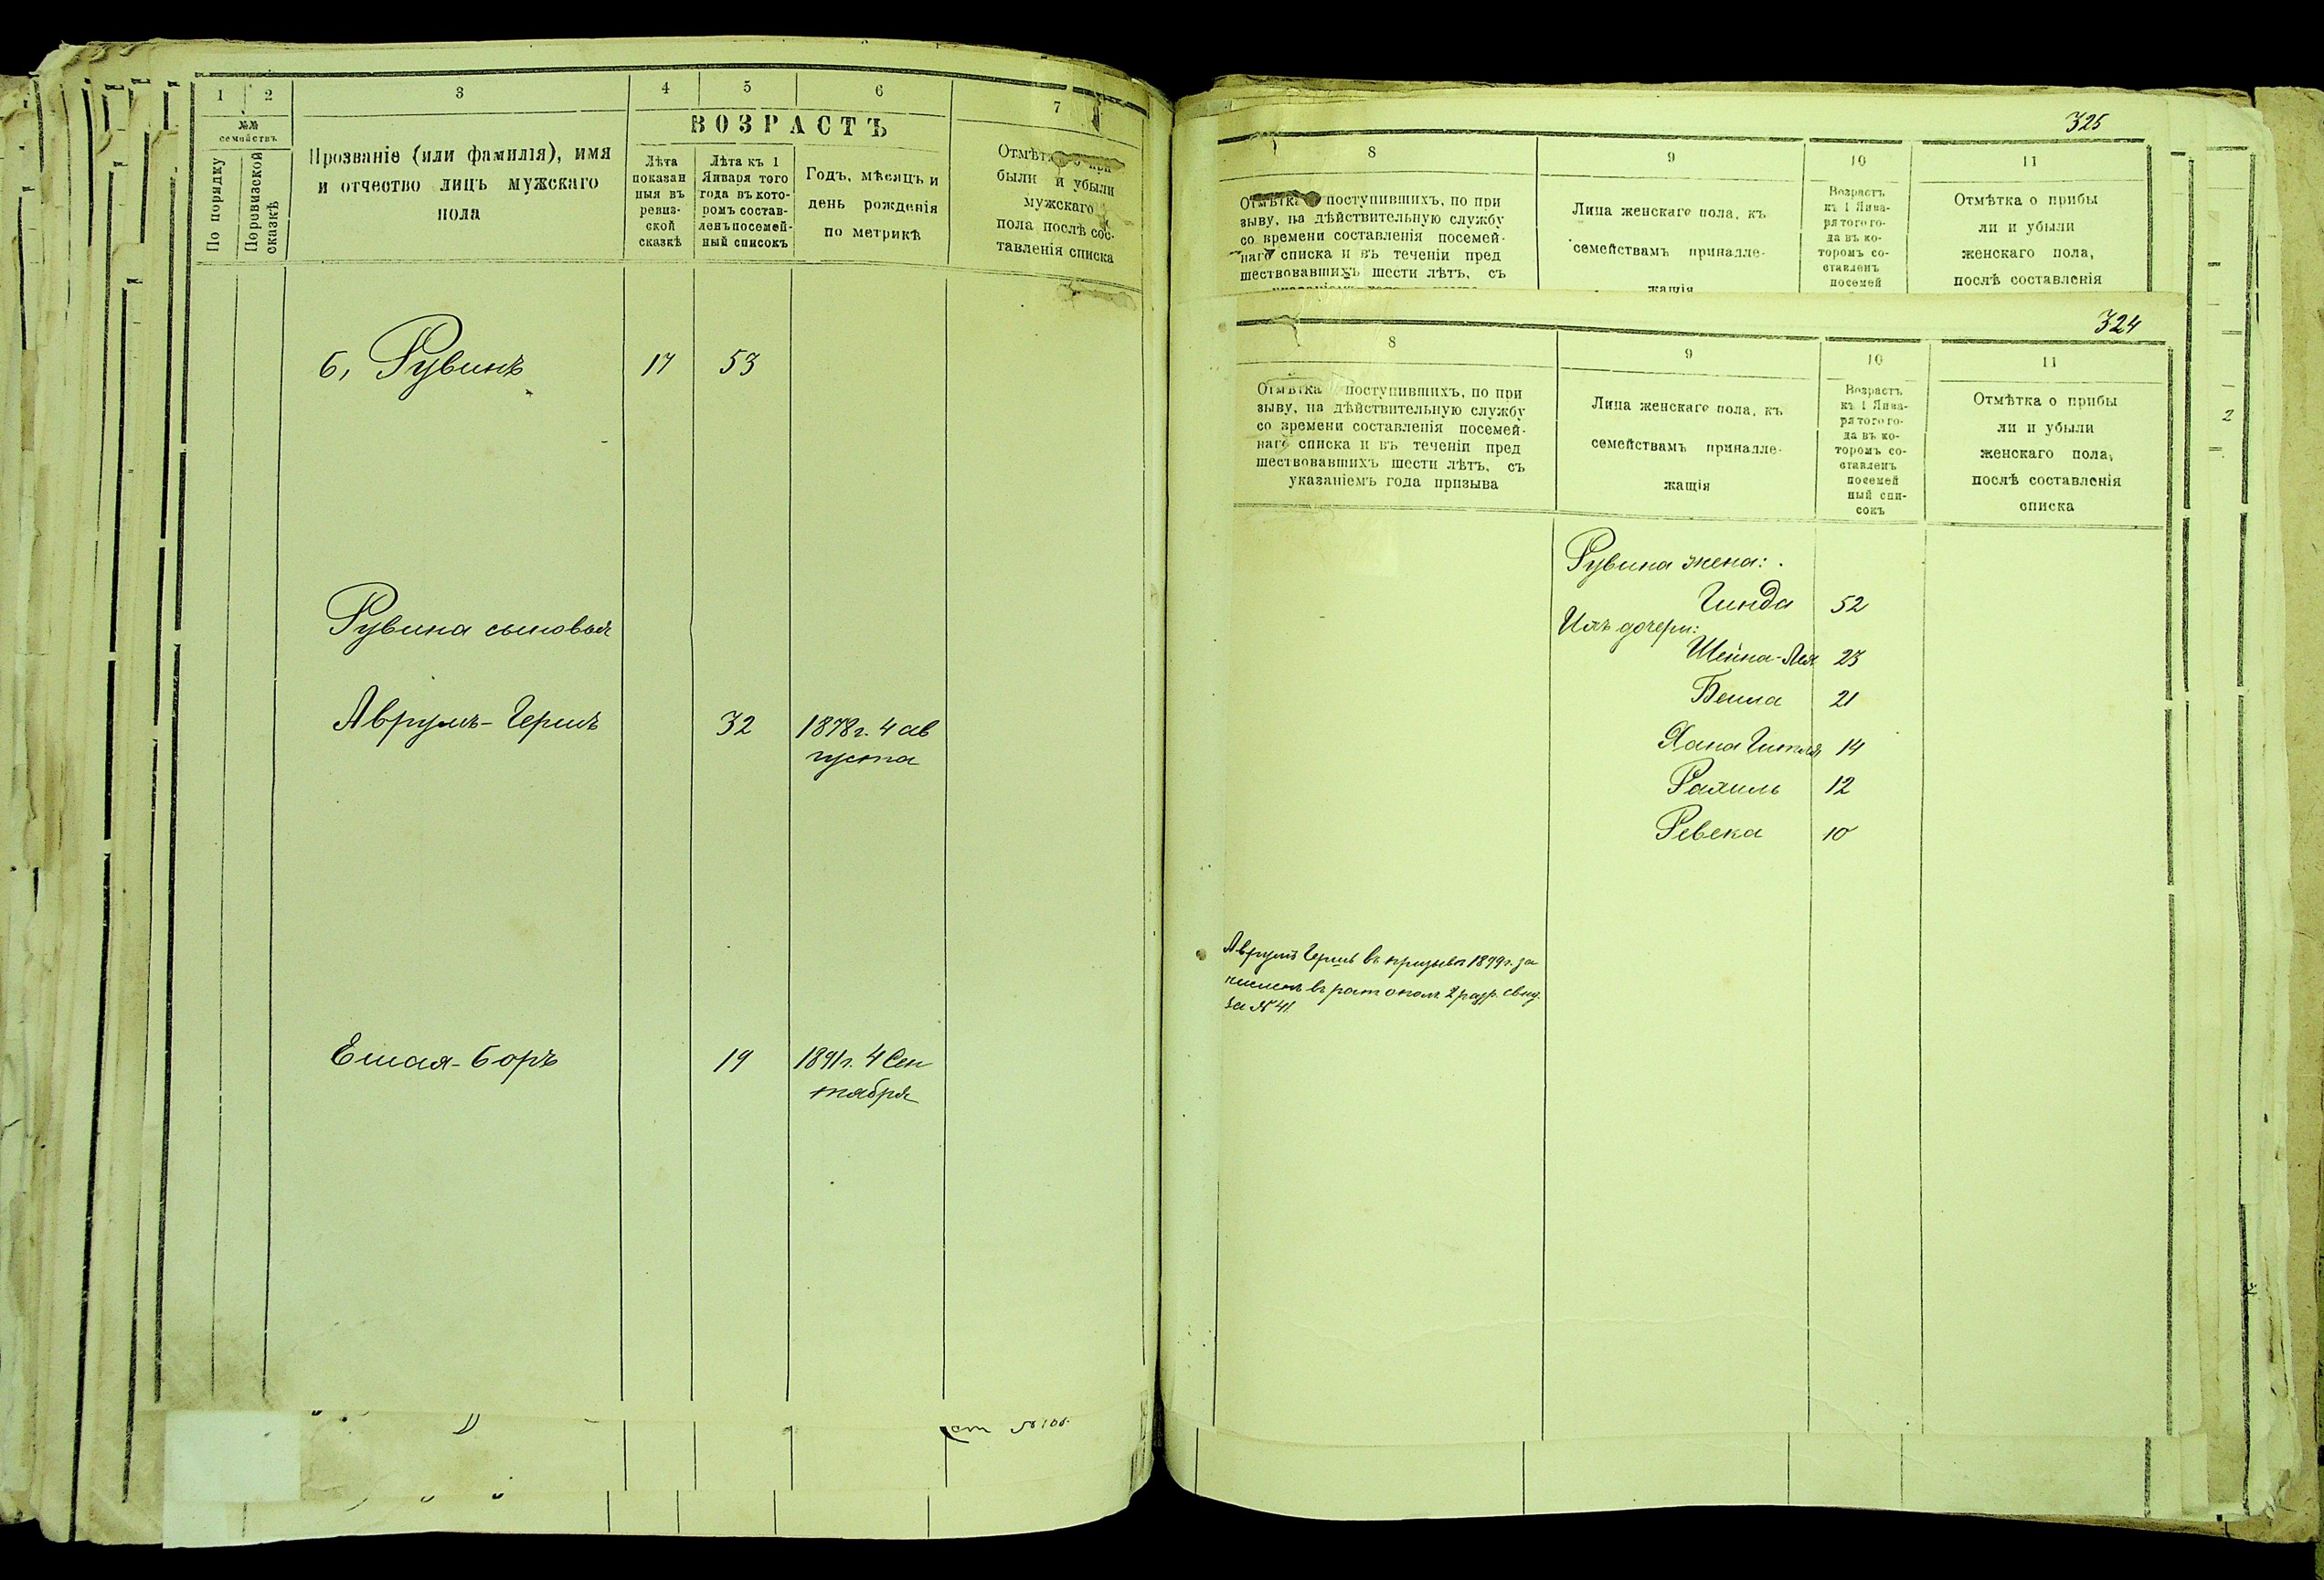 1 2 3 4 5 6 7
№№
семействъ
По порядку
По ревизской
сказкѣ
Прозваніе (или фамилія), имя
и отчество лицъ мужскаго
пола
ВОЗРАСТЪ
Лѣта
показан
ныя въ
ревиз-
ской
сказкѣ
Лѣта къ 1
Января того
года въ кото-
ромъ состав-
ленъ посемей-
ный списокъ
Годъ, мѣсяцъ и
день рожденія
по метрикѣ
Отмѣт при
были и убыли
мужскаго
пола послѣ сос-
тавленія списка
6, Рувинъ 17 53
Рувина сыновья
Аврумъ-Гершъ 32 1878 г. 4 ав
густа
Ешая-Боръ 19 1891 г. 4 Сен
тября
ст № 100
325
8 9 10 11
Отмѣтка поступившихъ, по при
зыву, на дѣйствительную службу
со времени составленія посемей-
наго списка и въ теченіи пред
шествовавшихъ шести лѣтъ, съ
Лица женскаго пола, къ
семействамъ принадле-
жащія
Возрастъ
къ 1 Янва-
ря того го-
да въ ко-
торомъ со-
ставленъ
посемей
Отмѣтка о прибы
ли и убыли
женскаго пола,
послѣ составленія
324
8 9 10 11
Отмѣтка поступившихъ, по при
зыву, на дѣйствительную службу
со времени составленія посемей-
наго списка и въ теченіи пред
шествовавшихъ шести лѣтъ, съ
указаніемъ года призыва
Лица женскаго пола, къ
семействамъ принадле-
жащія
Возрастъ
къ 1 Янва-
ря того го-
да въ ко-
торомъ со-
ставленъ
посемей
ный спи-
сокъ
Отмѣтка о прибы
ли и убыли
женскаго пола,
послѣ составленія
списка
Рувина жена:
Гинда 52
Ихъ дочери:
Шейна-Лея 23
Бейла 21
Хана Гитля 14
Рахиль 12
Ревека 10
Аврумъ Гершъ въ призывъ 1899 г. за
численъ въ рат ополч 2 разр. свид.
за № 41
2